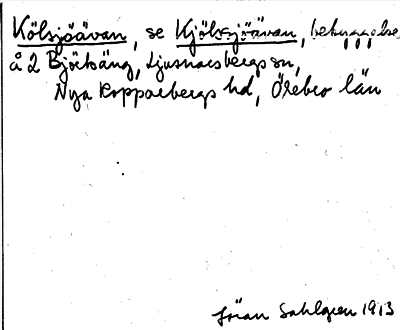 Kölsjöåvan, se Kjölsjöåvan, bebyggelse
å 2 Björkäng, Ljusnarsbergs sn,
Nya Kopparbergs hd, Örebro län
Jöran Sahlgren 1913